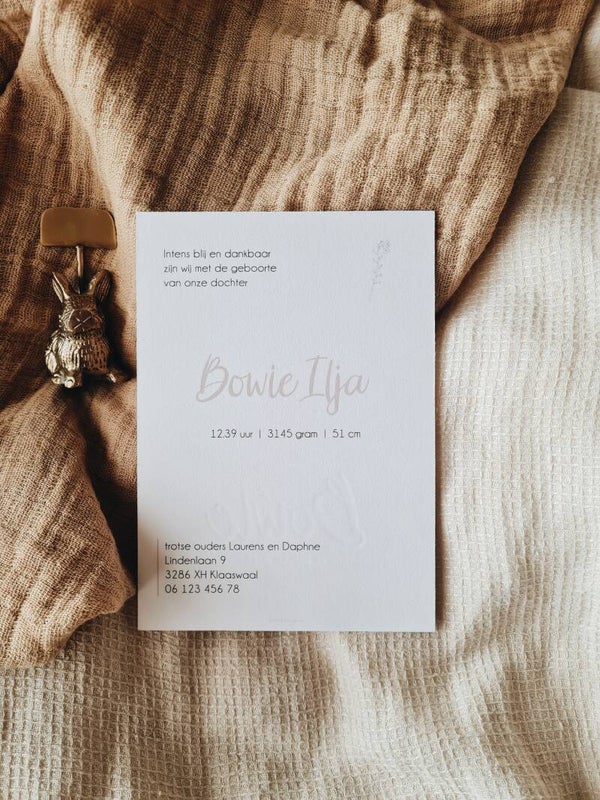 Intens blij en dankbaar
zijn wij met de geboorte
van onze dochter
Bowie Ilja
12.39 uur | 3145 gram | 51 cm
trotse ouders Laurens en Daphne
Lindenlaan 9
3286 XH Klaaswaal
06 123 456 78